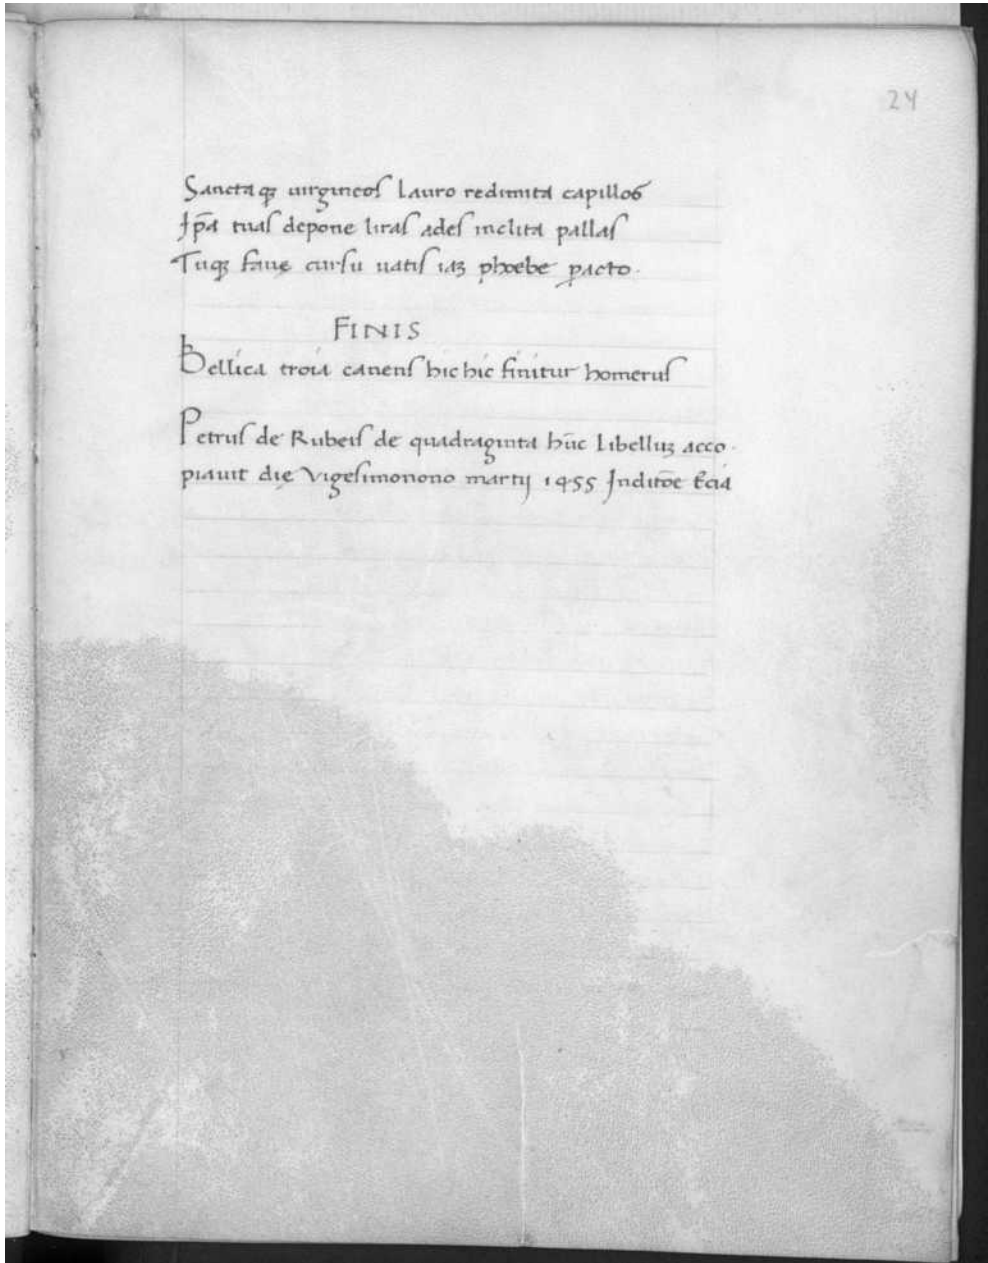 24
Sanctaqꝫ uirgineoſ Lauro redimita capilloſ
Jp̄a tuaſ depone liraſ adeſ inclita pallaſ
Tuqꝫ fauę curſu uatiſ iaꝫ phoebe ꝑacto.
FINIS
Bellica troia canenſ hic hic finitur homeruſ
Petruſ de Rubeiſ de quadraginta hūc Libelluꝫ acco.
piauit dię Vigeſimonono martij 1455 Inditōe t̄cia